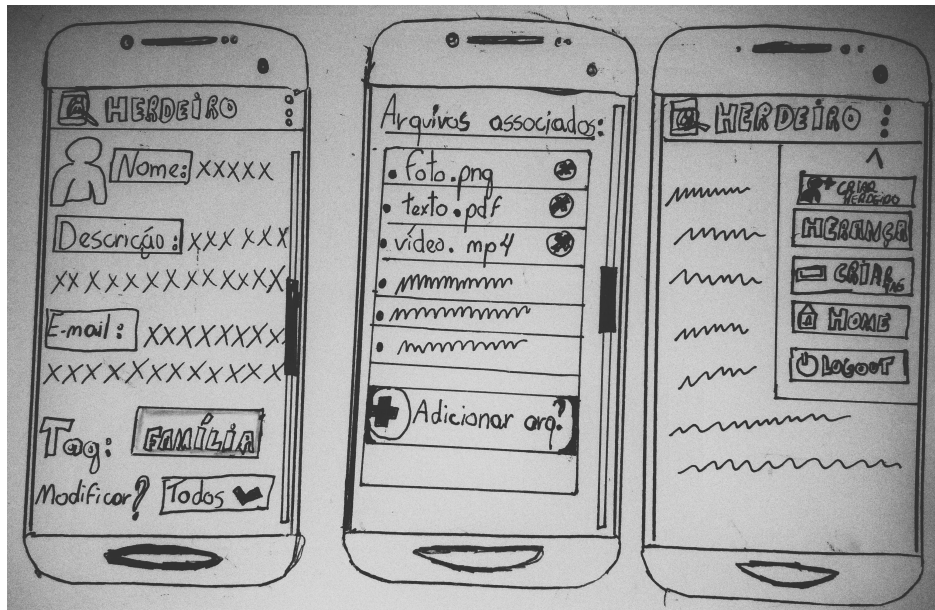 HERDEIRO
Nome: XXXXX
Descrição: XXX XXX
XXXXXXXXXXXX
E-mail: XXXXXXXX
XXXXXXXXXXXX
Tag: FAMÍLIA
Modificar? Todos
Arquivos associados:
foto.png
texto.pdf
vídeo.mp4
Adicionar arq.?
HERDEIRO
CRIAR
HERDEIRO
HERANÇA
CRIAR TAG
HOME
LOGOUT